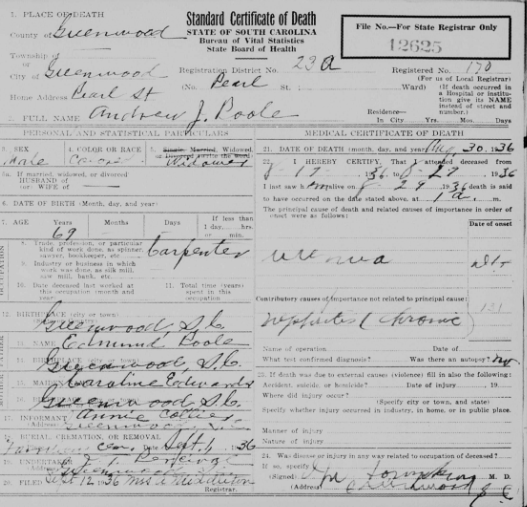 1. PLACE OF DEATH
County of Greenwood
Township of
or
City of Greenwood
Home Address Pearl St
2. FULL NAME Andrew J. Poole
Standard Certificate of Death
STATE OF SOUTH CAROLINA
Bureau of Vital Statistics
State Board of Health
Registration District No. 23A
(No. Pearl St., Ward)
File No.—For State Registrar Only
12625
Registered No. 170
(For us of Local Registrar)
(If death occurred in a Hospital or institution give its NAME instead of street and number.)
Residence—
In City Yrs. Mos. Days
PERSONAL AND STATISTICAL PARTICULARS
3. SEX
Male
4. COLOR OR RACE
5. Single, Married, Widowed, or Divorced (write the word)
Widower
5a. If married, widowed, or divorced
HUSBAND of
(or) WIFE of
6. DATE OF BIRTH (Month, day, and year)
7. AGE Years Months Days
69
If less than 1 day, hrs. or min.
8. Trade, profession, or particular kind of work done, as spinner, sawyer, bookkeeper, etc. Carpenter
9. Industry or business in which work was done, as silk mill, saw mill, bank, etc.
10. Date deceased last worked at this occupation (month and year)
11. Total time (years) spent in this occupation
OCCUPATION
12. BIRTHPLACE (city or town)
Greenwood, S.C.
13. NAME Edmund Poole
14. BIRTHPLACE (city or town)
Greenwood, S.C.
15. MAIDEN Caroline Edwards
16.
Greenwood S.C.
17. INFORMANT Annie
Greenwood
18. BURIAL, CREMATION, OR REMOVAL
Date Sept 1, 1936
19. UNDERTAKER
20. FILED Sept 12 1936 Mrs
Registrar.
MEDICAL CERTIFICATE OF DEATH
21. DATE OF DEATH (month, day, and year) Aug 30, 1936
22. I HEREBY CERTIFY, That I attended deceased from
8 17 1936 to 8 29 1936
I last saw h alive on 8 29 1936 death is said
to have occurred on the date stated above, at 1 a m.
The principal cause of death and related causes in importance in order of onset were as follows:
Date of onset
Uremia
131
Contributory causes of importance not related to principal cause:
Nephritis (chronic)
Name of operation Date of
What test confirmed diagnosis? Was there an autopsy? no
23. If death was due to external causes (violence) fill in also the following:
Accident, suicide, or homicide? Date of injury 19
Where did injury occur?
(Specify city or town, and state)
Specify whether injury occurred in industry, in home, or in public place.
Manner of injury
Nature of injury
24. Was disease or injury in any way related to occupation of deceased?
If so, specify
(Signed) M. D.
(Address) Greenwood S C